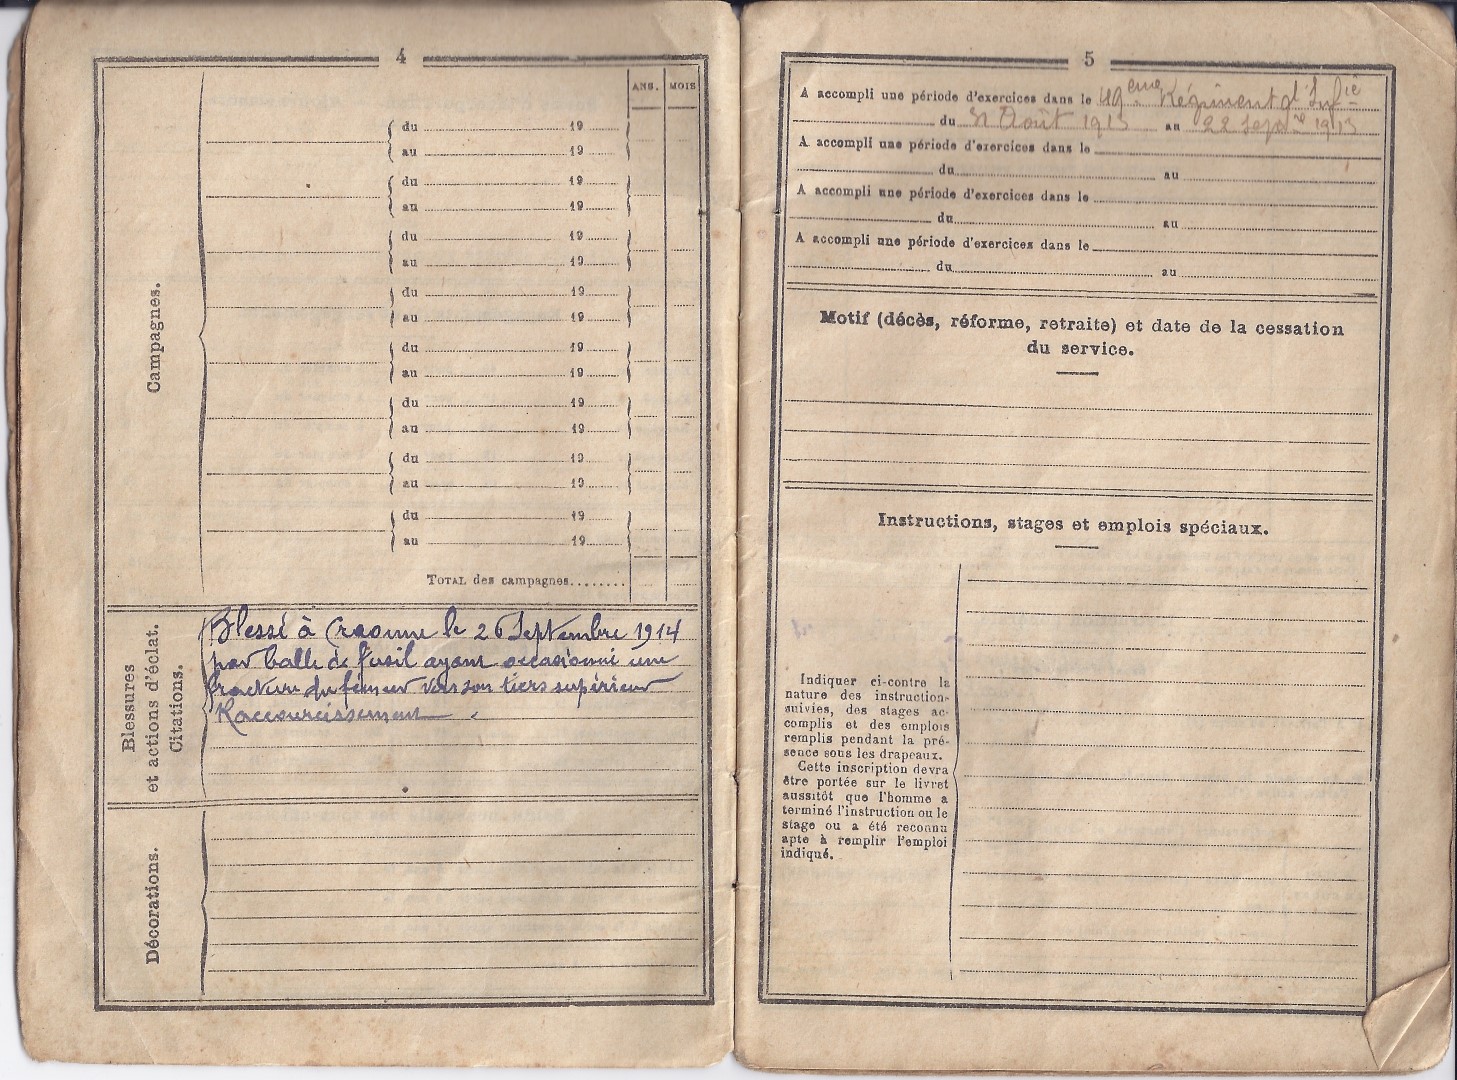 4
ANS. MOIS
Campagnes.
du 19
au 19
du 19
au 19
du 19
au 19
du 19
au 19
du 19
au 19
du 19
au 19
du 19
au 19
du 19
au 19
TOTAL des campagnes........
Blessures
et actions d'éclat.
Citations.
Blessé à Craonne le 26 Septembre 1914
par balle de fusil ayant occasionné une
fracture du femeur vers son tiers supérieur
Raccourcissement.
Décorations.
5
A accompli une période d'exercices dans le 49ème Régiment d'Infie
du 31 Août 1913 au 22 Septbre 1913
A accompli une période d'exercices dans le
du au
A accompli une période d'exercices dans le
du au
A accompli une période d'exercices dans le
du au
Motif (décès, réforme, retraite) et date de la cessation
du service.
Instructions, stages et emplois spéciaux.
Indiquer ci-contre la
nature des instruction-
suivies, des stages ac-
complis et des emplois
remplis pendant la pré-
sence sous les drapeaux.
Cette inscription devra
être portée sur le livret
aussitôt que l'homme a
terminé l'instruction ou le
stage ou a été reconnu
apte à remplir l'emploi
indiqué.